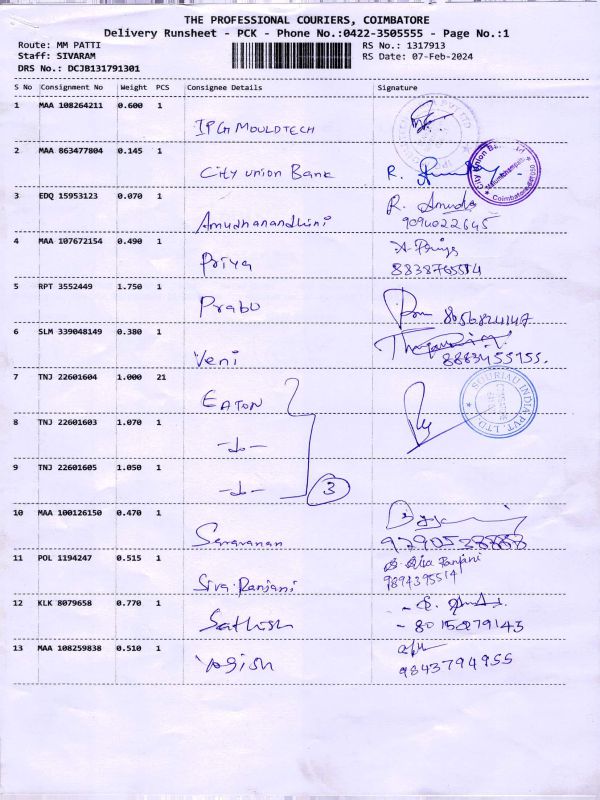 THE PROFESSIONAL COURIERS, COIMBATORE
Delivery Runsheet - PCK - Phone No.:0422-3505555 - Page No.:1
Route: MM PATTI RS No.: 1317913
Staff: SIVARAM RS Date: 07-Feb-2024
DRS No.: DCJB131791301
S No Consignment No Weight PCS Consignee Details Signature
1 MAA 108264211 0.600 1
IPG MOULDTECH
2 MAA 863477804 0.145 1
City union Bank R.
City Union Bank
Coimbatore
3 EDQ 15953123 0.070 1
Amudhanandhini R. Amudha
9094022645
4 MAA 107672154 0.490 1
Priya
5 RPT 3552449 1.750 1
Prabu 8056824147
6 SLM 339048149 0.380 1
Veni 8883455155.
7 TNJ 22601604 1.000 21
EATON
SOURIAU INDIA PVT. LTD.
8 TNJ 22601603 1.070 1
-do-
9 TNJ 22601605 1.050 1
-do- 3
10 MAA 100126150 0.470 1
Saravanan
11 POL 1194247 0.515 1
Siva Ranjani
9894395514
12 KLK 8079658 0.770 1
Sathish
- 8015079143
13 MAA 108259838 0.510 1
9843794955